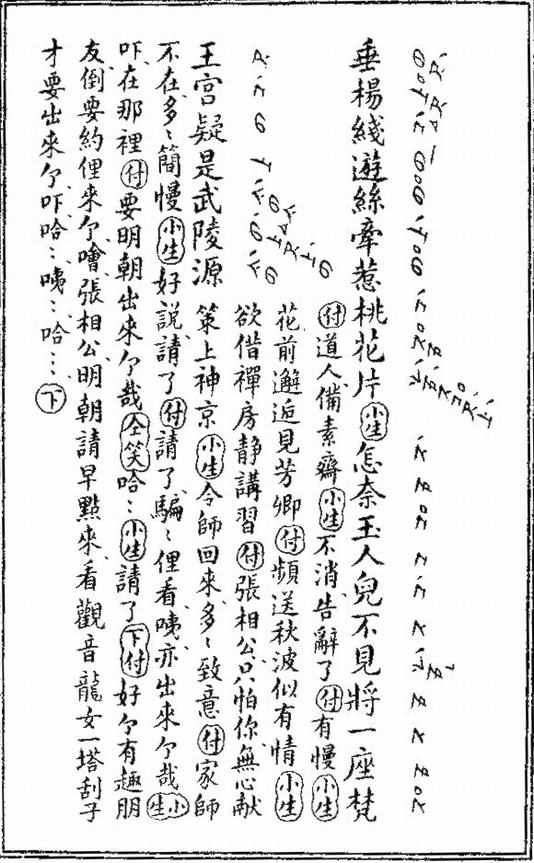 垂楊綫遊絲牽惹桃花片小生怎奈玉人兒不見將一座梵
王宮疑是武陵源
付道人備素齋小生不消告辭了付有慢小生
花前邂逅見芳卿付頻送秋波似有情小生
欲借禪房静講習付張相公只怕你無心献
策上神京小生令師回來多〻致意付家師
不在多〻簡慢小生好說請了付請了騙〻俚看咦亦出來亇哉小生
吓在那裡付要明朝出來亇哉仝笑哈〻小生請了下付好亇有趣朋
友倒要約俚來亇噲張相公明朝請早點來看觀音龍女一塔刮子
才要出來亇吓哈〻咦〻哈〻〻下